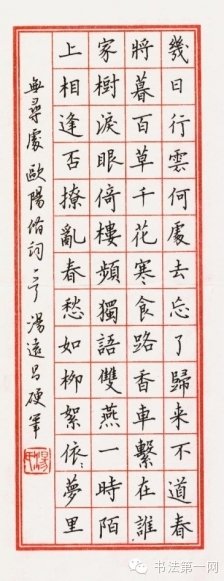 幾日行雲何處去忘了歸来不道春
將暮百草千花寒食路香車繫在誰
家樹淚眼倚樓頻獨語雙燕一時陌
上相逢否撩亂春愁如柳絮依〻夢里
無尋處 歐陽脩詞 湯遠昌硬筆
书法第一网